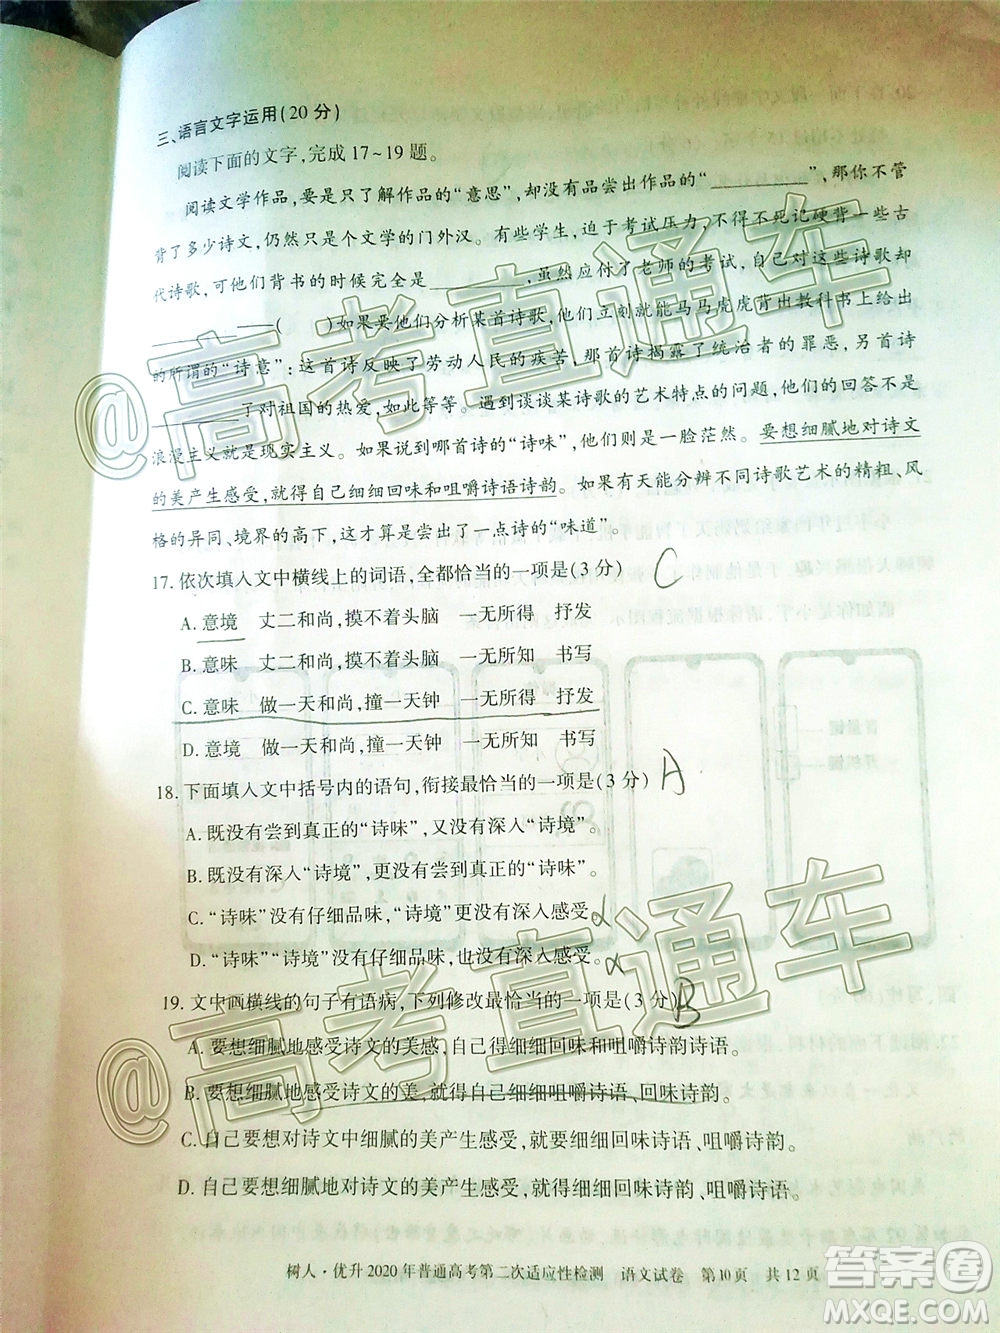 三、语言文字运用(20分)
阅读下面的文字,完成17~19题。
阅读文学作品,要是只了解作品的“意思”,却没有品尝出作品的“________”,那你不管
背了多少诗文,仍然只是个文学的门外汉。有些学生,迫于考试压力,不得不死记硬背一些古
代诗歌,可他们背书的时候完全是________,虽然应付了老师的考试,自己却
________。(  )如果要他们分析某首诗歌,他们立刻就能马马虎虎背出教科书上给出
的所谓的“诗意”:这首诗反映了劳动人民的疾苦、那首诗揭露了统治者的罪恶、另首诗
________了对祖国的热爱,如此等等。遇到谈谈某诗歌的艺术特点的问题,他们的回答不是
浪漫主义就是现实主义。如果说到哪首诗的“诗味”,他们则是一脸茫然。要想细腻地对诗文
的美产生感受,就得自己细细回味和咀嚼诗语诗韵。如果有天能分辨不同诗歌艺术的精粗、风
格的异同、境界的高下,这才算是尝出了一点诗的“味道”。
17. 依次填入文中横线上的词语,全都恰当的一项是(3分) C
A. 意境 丈二和尚,摸不着头脑 一无所得 抒发
B. 意味 丈二和尚,摸不着头脑 一无所近 书写
C. 意味 做一天和尚,撞一天钟 一无所得 抒发
D. 意境 做一天和尚,撞一天钟 一无所近 书写
18. 下面填入文中括号内的语句,衔接最恰当的一项是(3分) A
A. 既没有尝到真正的“诗味”,又没有深入“诗境”。
B. 既没有深入“诗境”,也没有尝到真正的“诗味”。
C. “诗味”没有仔细品味,“诗境”更没有深入感受。
D. “诗味”“诗境”没有仔细品味,也没有深入感受。
19. 文中画横线的句子有语病,下列修改最恰当的一项是(3分) B
A. 要想细腻地感受诗文的美感,自己得细细回味和咀嚼诗韵诗语。
B. 要想细腻地感受诗文的美,就得自己细细咀嚼诗语、回味诗韵。
C. 自己要想对诗文中细腻的美产生感受,就要细细回味诗语、咀嚼诗韵。
D. 自己要想细腻地对诗文的美产生感受,就得细细回味诗韵、咀嚼诗语。
树人·优升2020年普通高考第二次适应性检测 语文试卷 第10页 共12页
@高考直通车
@高考直通车
答案圈
MXQE.COM